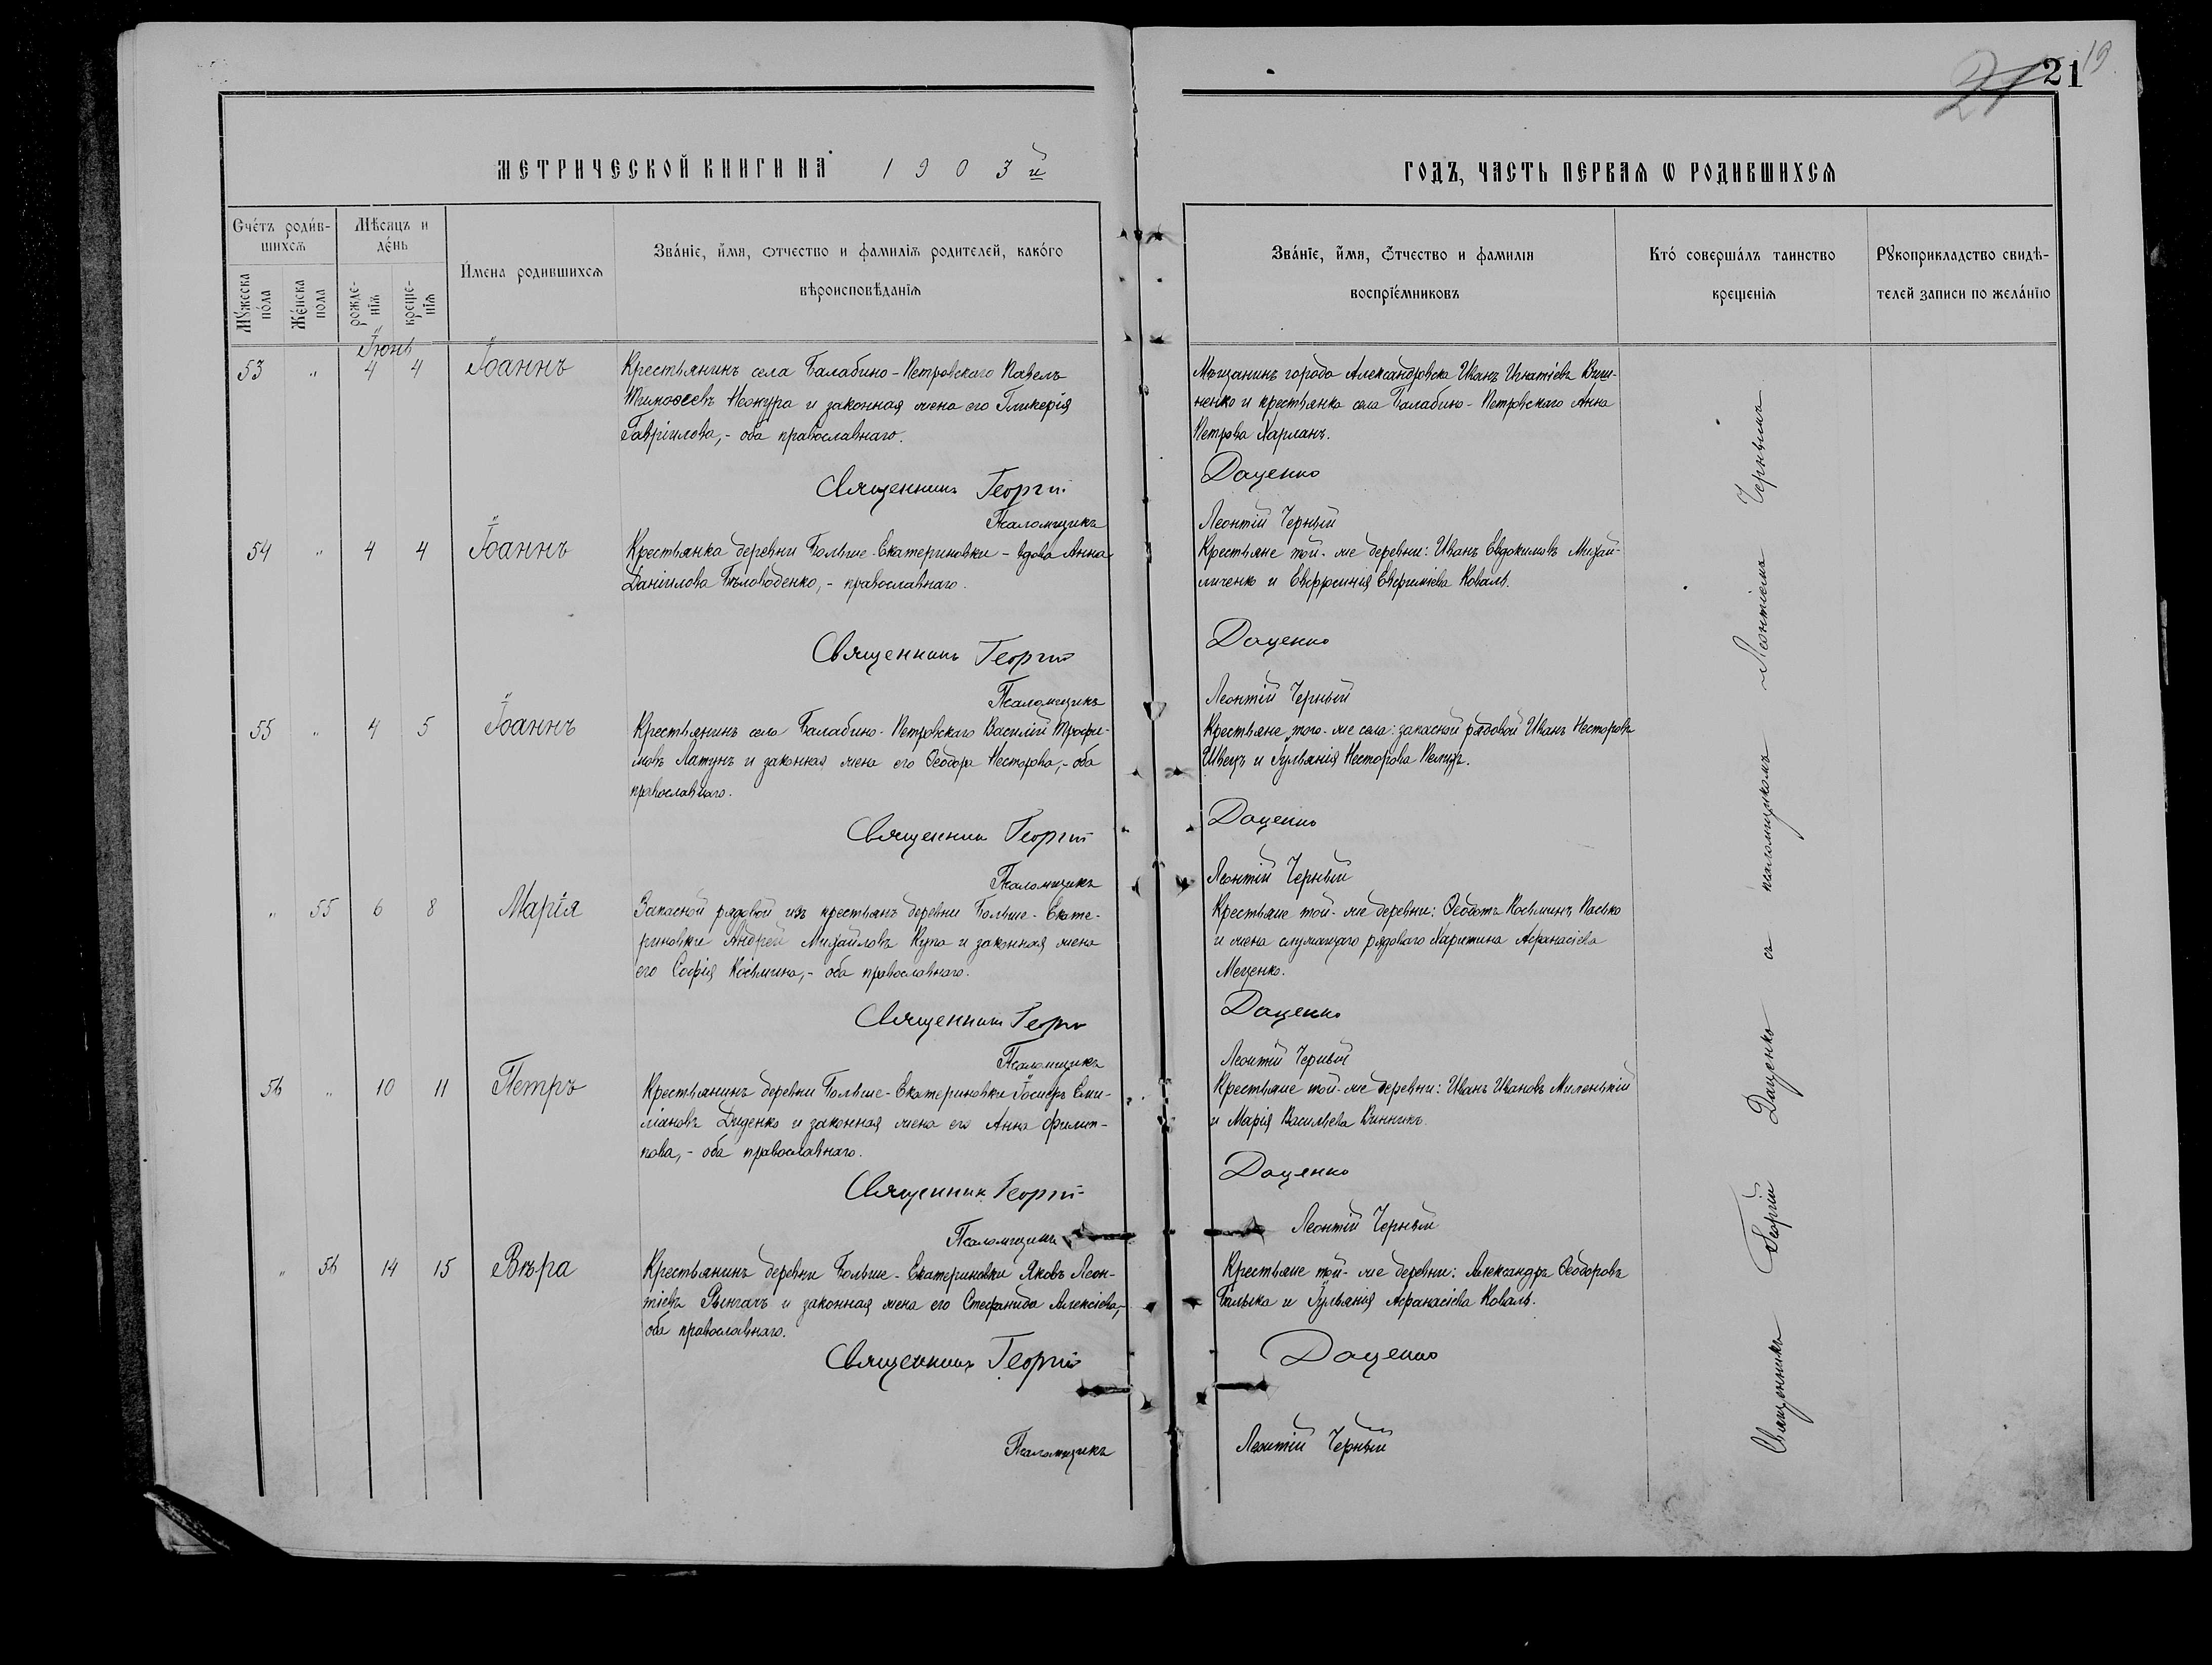 21 19
21
МЕТРИЧЕСКОЙ КНИГИ НА 1903й ГОДЪ, ЧАСТЬ ПЕРВАЯ Ѡ РОДИВШИХСЯ
Счетъ родив-
шихся
Мѣсяцъ и
день
Мужеска
пола
Женска
пола
рожде-
нія
креще-
нія
Имена родившихся
Званіе, имя, отчество и фамилія родителей, какого
вѣроисповѣданія
Званіе, имя, отчество и фамилія
воспріемниковъ
Кто совершалъ таинство
крещенія
Рукоприкладство свидѣ-
телей записи по желанію
Іюнь
53 " 4 4 Іоаннъ
Крестьянинъ села Балабино-Петровскаго Павелъ
Тимоѳеевъ и законная жена его Гликерія
Гавріилова, - оба православнаго.
Мѣщанинъ города Александровска Иванъ Игнатіевъ Виш-
ненко и крестьянка села Балабино-Петровскаго Анна
Петрова Харланъ.
Священникъ Георгій Даценко
Псаломщикъ Леонтій Черный
54 " 4 4 Іоаннъ
Крестьянка деревни Больше-Екатериновки - вдова Анна
Даніилова Бѣловоденко, - православнаго.
Крестьяне той-же деревни: Иванъ Евдокимовъ Михай-
личенко и Евфросинія Евфиміева Коваль.
Священникъ Георгій Даценко
Псаломщикъ Леонтій Черный
55 " 4 5 Іоаннъ
Крестьянинъ села Балабино-Петровскаго Василій Трофи-
мовъ Латунъ и законная жена его Ѳеодора Несторова, - оба
православнаго.
Крестьяне того-же села: запасной рядовой Иванъ Несторовъ
Швецъ и Іуліанія Несторова
Священникъ Георгій Даценко
Псаломщикъ Леонтій Черный
" 55 6 8 Марія
Запасной рядовой изъ крестьянъ деревни Больше-Екате-
риновки Андрей Михайловъ Купа и законная жена
его Софія Косьмина, - оба православнаго.
Крестьяне той-же деревни: Ѳеодотъ Косьминъ Пасько
и жена служащаго рядоваго Харитина Афанасіева
Меценко.
Священникъ Георгій Даценко
Псаломщикъ Леонтій Черный
56 " 10 11 Петръ
Крестьянинъ деревни Больше-Екатериновки Іосифъ Еми-
ліановъ Диденко и законная жена его Анна Филип-
пова, - оба православнаго.
Крестьяне той-же деревни: Иванъ Ивановъ Миленькій
и Марія Васильева Винникъ.
Священникъ Георгій Даценко
Псаломщикъ Леонтій Черный
" 56 14 15 Вѣра
Крестьянинъ деревни Больше-Екатериновки Яковъ Леон-
тіевъ Рынгачъ и законная жена его Стефанида Алексіева,-
оба православнаго.
Крестьяне той-же деревни: Александръ Ѳеодоровъ
Билыка и Іуліанія Афанасіева Коваль.
Священникъ Георгій Даценко
Псаломщикъ Леонтій Черный
Священникъ Георгій Даценко съ псаломщикомъ Леонтіемъ Чернымъ